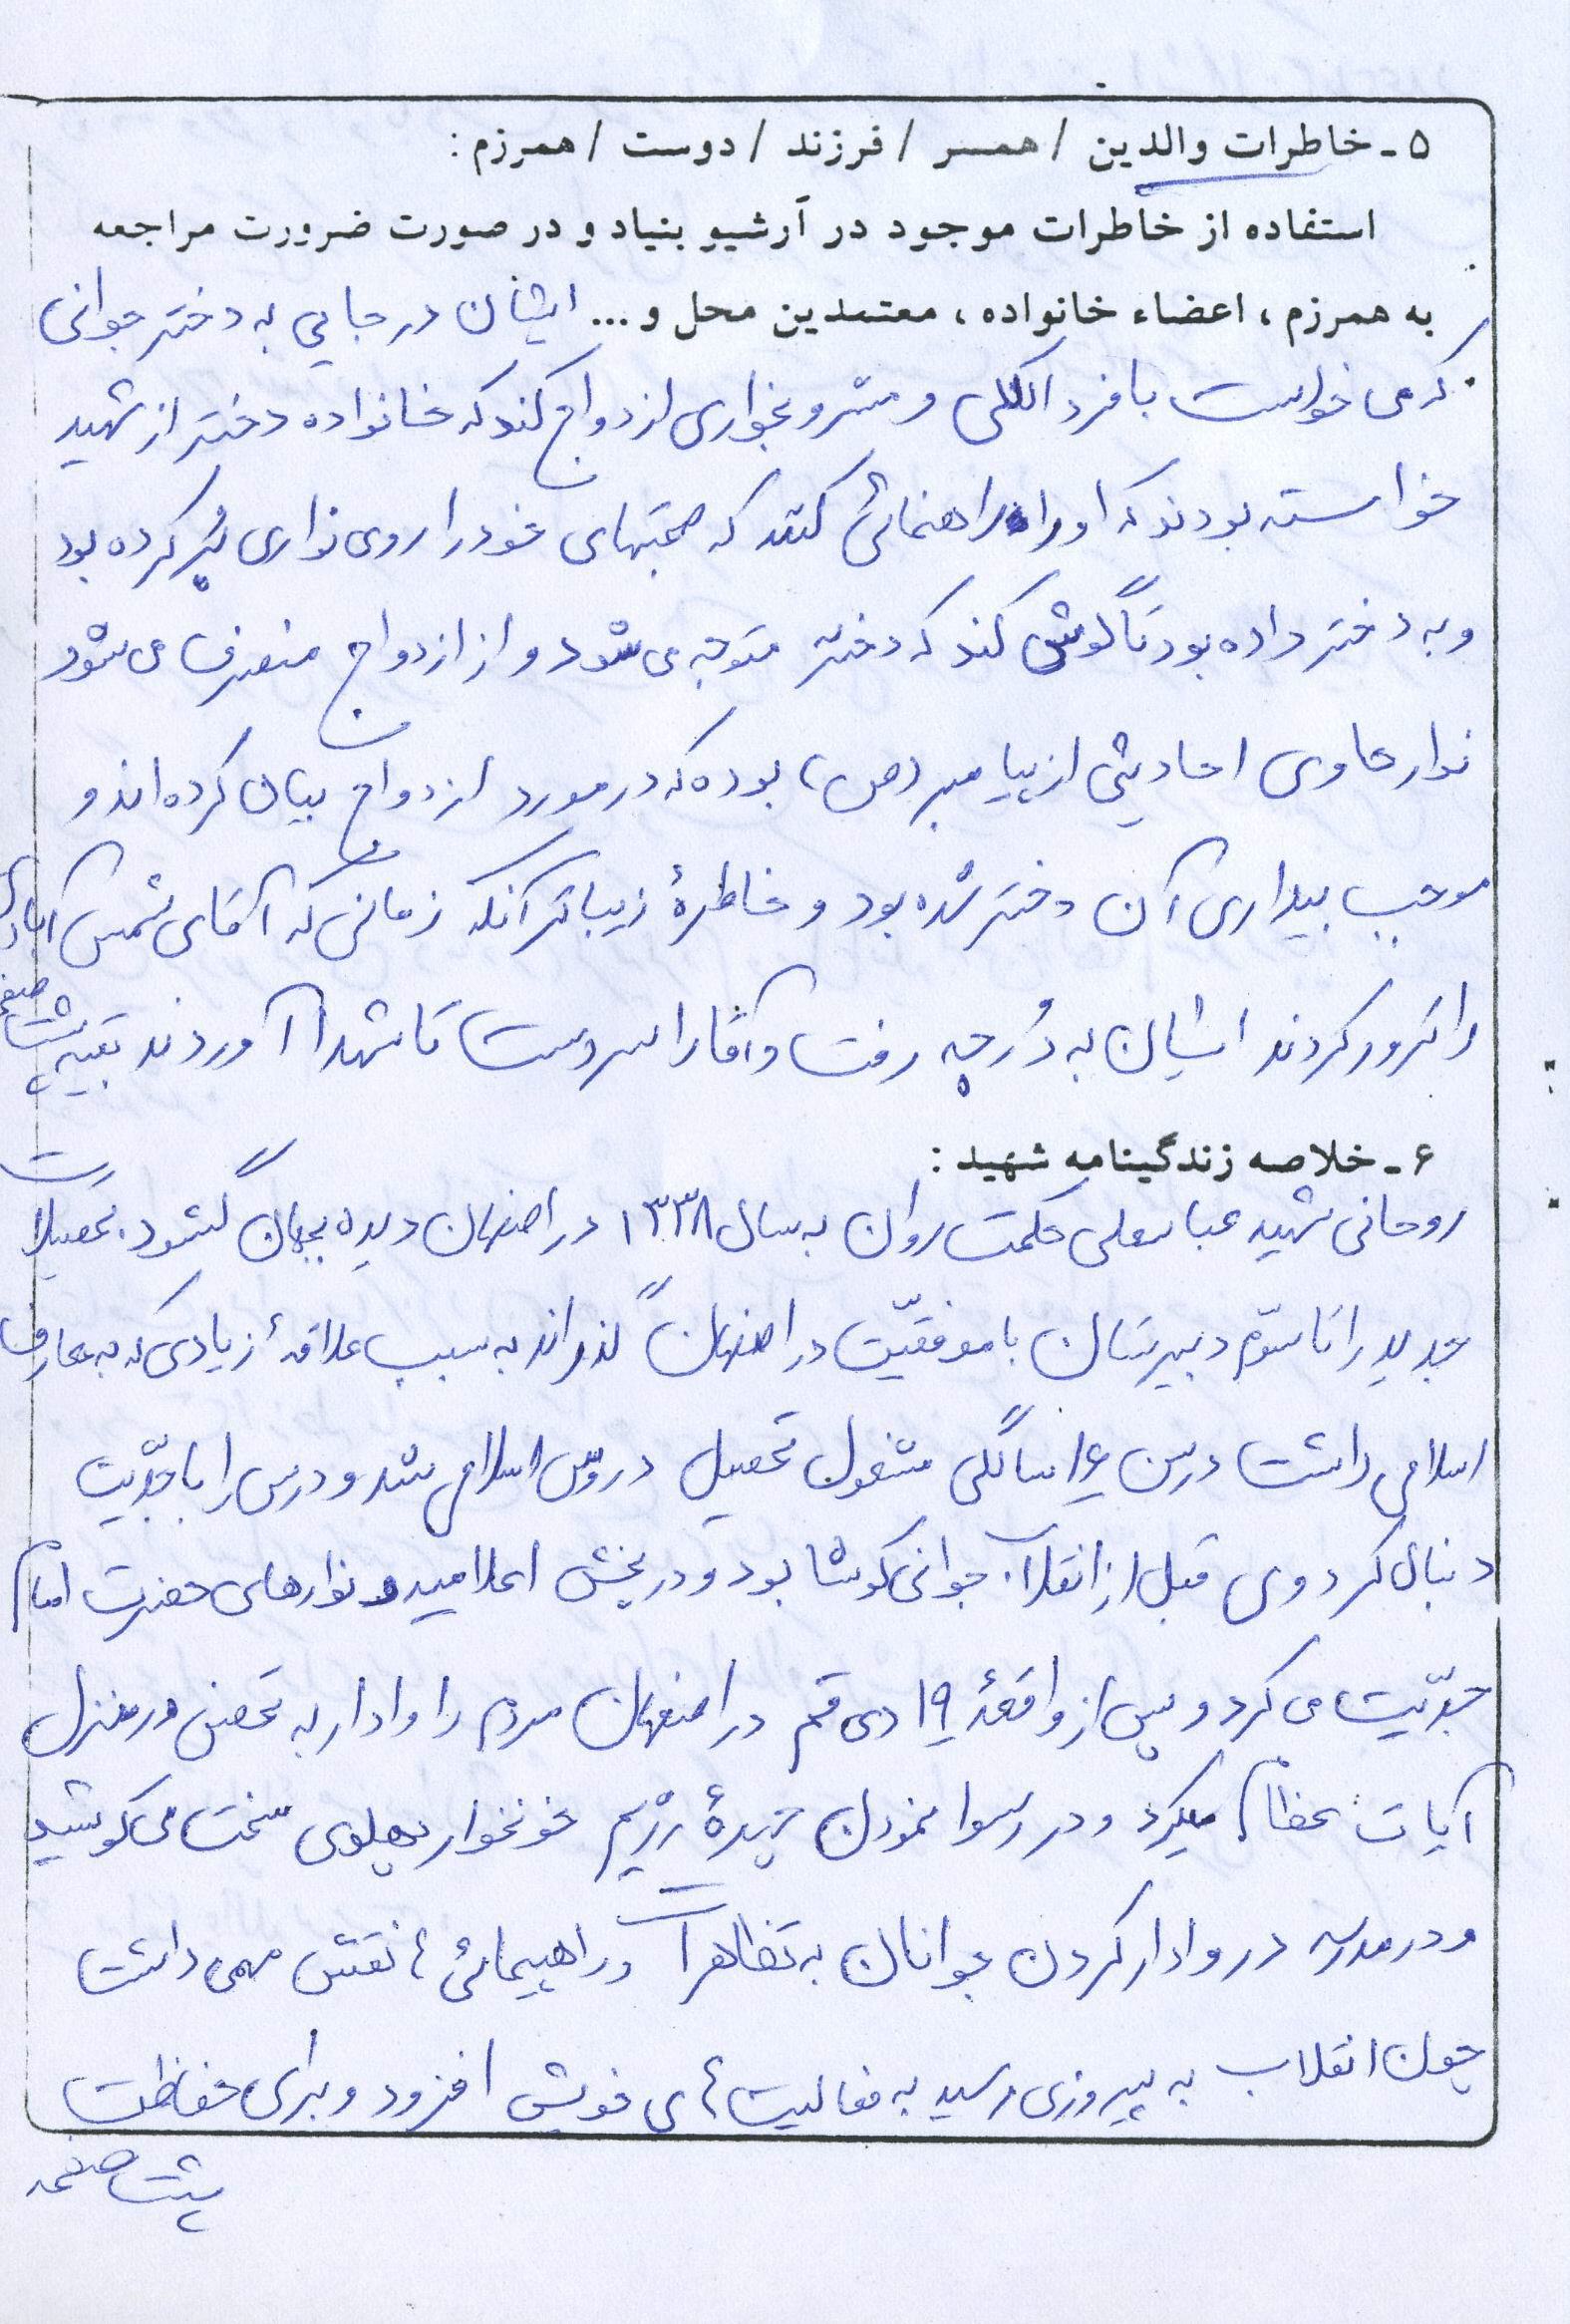 ۵ - خاطرات والدین / همسر / فرزند / دوست / همرزم :
استفاده از خاطرات موجود در آرشیو بنیاد و در صورت ضرورت مراجعه
به همرزم ، اعضاء خانواده ، معتمدین محل و ... ایشان در جایی به دختر جوانی
که می خواست با فرد الکلی و مشروبخواری ازدواج کند که خانواده دختر از شهید
خواسته بودند که او را راهنمائی کنند که صحبتهای خود را روی نواری پُر کرده بود
و به دختر داده بود تا گوش کند که دختر متوجه می شود و از ازدواج منصرف می شود
نوار حاوی احادیثی از پیامبر (ص) بوده که در مورد ازدواج بیان کرده اند و
موجب بیداری آن دختر شده بود و خاطرهٔ زیباتر آنکه زمانی که آقای شمس آبادی
را ترور کردند ایشان به دُرچه رفت و آقا را سردست تا شهدا آوردند بقیه پشت صفحه
۶ - خلاصه زندگینامه شهید :
روحانی شهید عباسعلی حکمت روان به سال ۱۳۳۸ در اصفهان دیده بجهان گشود. تحصیلات
جدید را تا سوّم دبیرستان با موفقیّت در اصفهان گذراند به سبب علاقهٔ زیادی که به معارف
اسلامی داشت در سن ۱۶ سالگی مشغول تحصیل دروس اسلامی شد و درس را با جدّیت
دنبال کرد وی قبل از انقلاب جوانی کوشا بود و در پخش اعلامیه و نوارهای حضرت امام
جدّیت می کرد و پس از واقعهٔ ۱۹ دی قم در اصفهان مردم را وادار به تحصن در منزل
آیات عظام میکرد و در رسوا نمودن چهرهٔ رژیم خونخوار پهلوی سخت می کوشید
و در مدرسه در وادار کردن جوانان به تظاهرات و راهپیمائی ها نقش مهمی داشت
چون انقلاب به پیروزی رسید به فعالیت های خویش افزود و برای حفاظت
پشت صفحه